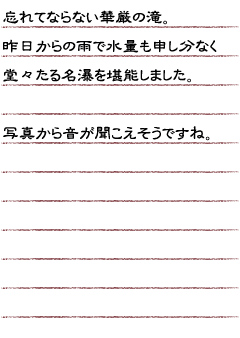 忘れてならない華厳の滝。
昨日からの雨で水量も申し分なく
堂々たる名瀑を堪能しました。
写真から音が聞こえそうですね。